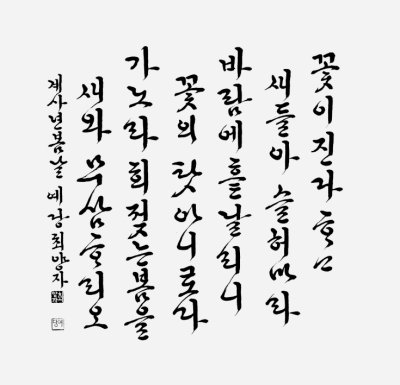 꽃이 진다 ᄒᆞ고
새들아 슬허마라
바람에 흩날리니
꽃의 탓 아니로다
가노라 희짓는 봄을
새와 무삼ᄒᆞ리오
계사년 봄날 예랑 최양자